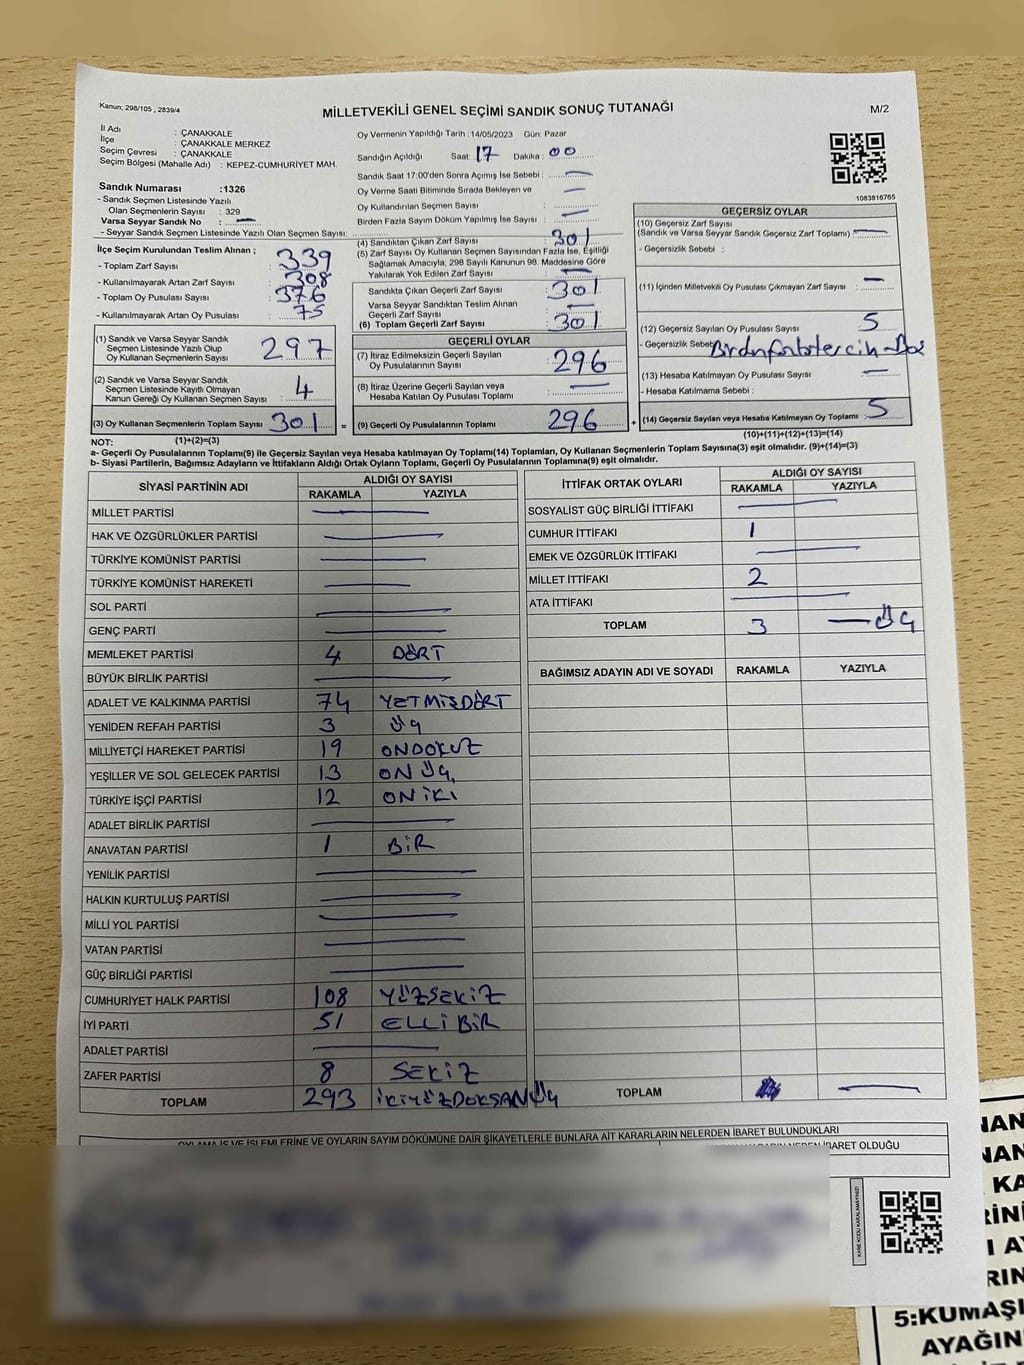 Kanun; 298/105 , 2839/4
MİLLETVEKİLİ GENEL SEÇİMİ SANDIK SONUÇ TUTANAĞI
M/2
İl Adı : ÇANAKKALE
İlçe : ÇANAKKALE MERKEZ
Seçim Çevresi : ÇANAKKALE
Seçim Bölgesi (Mahalle Adı) : KEPEZ-CUMHURİYET MAH.
Sandık Numarası :1326
- Sandık Seçmen Listesinde Yazılı
Olan Seçmenlerin Sayısı : 329
Varsa Seyyar Sandık No : —
- Seyyar Sandık Seçmen Listesinde Yazılı Olan Seçmen Sayısı:
Oy Vermenin Yapıldığı Tarih :14/05/2023 Gün: Pazar
Sandığın Açıldığı Saat: 17 Dakika : 00
Sandık Saat 17:00'den Sonra Açılmış İse Sebebi : —
Oy Verme Saati Bitiminde Sırada Bekleyen ve —
Oy Kullandırılan Seçmen Sayısı
Birden Fazla Sayım Döküm Yapılmış İse Sayısı : —
1083816765
İlçe Seçim Kurulundan Teslim Alınan ;
- Toplam Zarf Sayısı : 339
- Kullanılmayarak Artan Zarf Sayısı : 308
- Toplam Oy Pusulası Sayısı : 376
- Kullanılmayarak Artan Oy Pusulası : 75
(1) Sandık ve Varsa Seyyar Sandık
Seçmen Listesinde Yazılı Olup
Oy Kullanan Seçmenlerin Sayısı : 297
(2) Sandık ve Varsa Seyyar Sandık
Seçmen Listesinde Kayıtlı Olmayan
Kanun Gereği Oy Kullanan Seçmen Sayısı : 4
(3) Oy Kullanan Seçmenlerin Toplam Sayısı : 301 =
(4) Sandıktan Çıkan Zarf Sayısı : 301
(5) Zarf Sayısı Oy Kullanan Seçmen Sayısından Fazla İse, Eşitliği
Sağlamak Amacıyla; 298 Sayılı Kanunun 98. Maddesine Göre
Yakılarak Yok Edilen Zarf Sayısı : —
Sandıkta Çıkan Geçerli Zarf Sayısı : 301
Varsa Seyyar Sandıktan Teslim Alınan
Geçerli Zarf Sayısı : —
(6) Toplam Geçerli Zarf Sayısı : 301
GEÇERLİ OYLAR
(7) İtiraz Edilmeksizin Geçerli Sayılan
Oy Pusulalarının Sayısı : 296
(8) İtiraz Üzerine Geçerli Sayılan veya
Hesaba Katılan Oy Pusulası Toplamı : —
(9) Geçerli Oy Pusulalarının Toplamı : 296 +
GEÇERSİZ OYLAR
(10) Geçersiz Zarf Sayısı
(Sandık ve Varsa Seyyar Sandık Geçersiz Zarf Toplamı) : —
- Geçersizlik Sebebi :
(11) İçinden Milletvekili Oy Pusulası Çıkmayan Zarf Sayısı : —
(12) Geçersiz Sayılan Oy Pusulası Sayısı : 5
- Geçersizlik Sebebi
(13) Hesaba Katılmayan Oy Pusulası Sayısı : —
- Hesaba Katılmama Sebebi :
(14) Geçersiz Sayılan veya Hesaba Katılmayan Oy Toplamı : 5
(1)+(2)=(3)
(10)+(11)+(12)+(13)=(14)
NOT:
a- Geçerli Oy Pusulalarının Toplamı(9) ile Geçersiz Sayılan veya Hesaba katılmayan Oy Toplamı(14) Toplamları, Oy Kullanan Seçmenlerin Toplam Sayısına(3) eşit olmalıdır. (9)+(14)=(3)
b- Siyasi Partilerin, Bağımsız Adayların ve İttifakların Aldığı Ortak Oyların Toplamı, Geçerli Oy Pusulalarının Toplamına(9) eşit olmalıdır.
SİYASİ PARTİNİN ADI
ALDIĞI OY SAYISI
RAKAMLA YAZIYLA
MİLLET PARTİSİ —
HAK VE ÖZGÜRLÜKLER PARTİSİ —
TÜRKİYE KOMÜNİST PARTİSİ —
TÜRKİYE KOMÜNİST HAREKETİ —
SOL PARTİ —
GENÇ PARTİ —
MEMLEKET PARTİSİ 4 DÖRT
BÜYÜK BİRLİK PARTİSİ —
ADALET VE KALKINMA PARTİSİ 74 YETMİŞDÖRT
YENİDEN REFAH PARTİSİ 3 ÜÇ
MİLLİYETÇİ HAREKET PARTİSİ 19 ONDOKUZ
YEŞİLLER VE SOL GELECEK PARTİSİ 13 ON ÜÇ
TÜRKİYE İŞÇİ PARTİSİ 12 ON İKİ
ADALET BİRLİK PARTİSİ —
ANAVATAN PARTİSİ 1 BİR
YENİLİK PARTİSİ —
HALKIN KURTULUŞ PARTİSİ —
MİLLİ YOL PARTİSİ —
VATAN PARTİSİ —
GÜÇ BİRLİĞİ PARTİSİ —
CUMHURİYET HALK PARTİSİ 108 YÜZSEKİZ
İYİ PARTİ 51 ELLİ BİR
ADALET PARTİSİ —
ZAFER PARTİSİ 8 SEKİZ
TOPLAM 293 İKİYÜZDOKSANÜÇ
İTTİFAK ORTAK OYLARI
ALDIĞI OY SAYISI
RAKAMLA YAZIYLA
SOSYALİST GÜÇ BİRLİĞİ İTTİFAKI —
CUMHUR İTTİFAKI 1
EMEK VE ÖZGÜRLÜK İTTİFAKI —
MİLLET İTTİFAKI 2
ATA İTTİFAKI —
TOPLAM 3 — ÜÇ
BAĞIMSIZ ADAYIN ADI VE SOYADI RAKAMLA YAZIYLA
TOPLAM —
OYLAMA İŞ VE İŞLEMLERİNE VE OYLARIN SAYIM DÖKÜMÜNE DAİR ŞİKAYETLERLE BUNLARA AİT KARARLARIN NELERDEN İBARET BULUNDUKLARI
İBARET OLDUĞU
KARE KODU KARALAMAYINIZ!
5:KUMAŞI
AYAĞIN